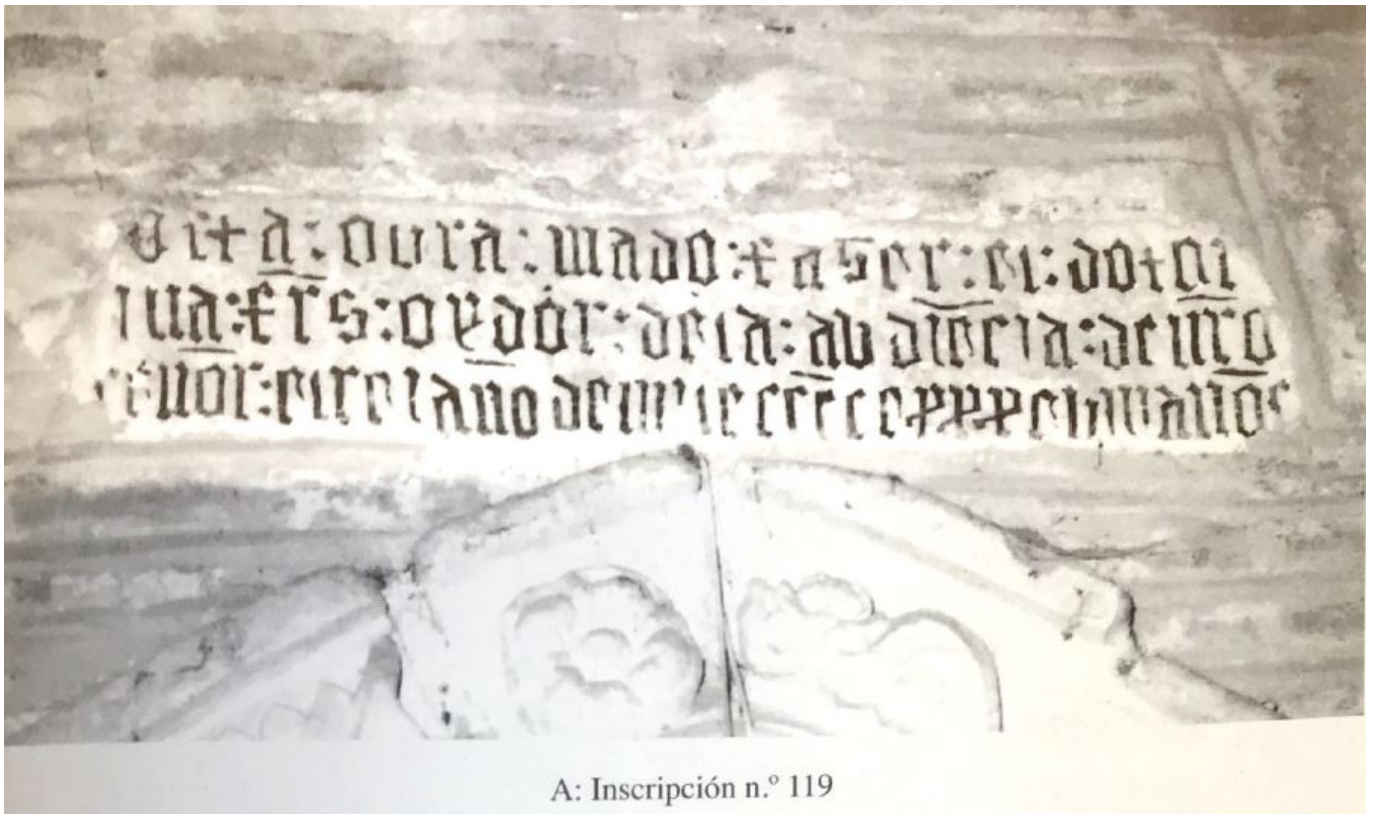 esta : obra : mado : faser : el : dotor
iuã : frs : oydor : dela : abdiēcia : de nr̄o
señor : el rei año de mill e cccc e xxx e años
A: Inscripción n.º 119